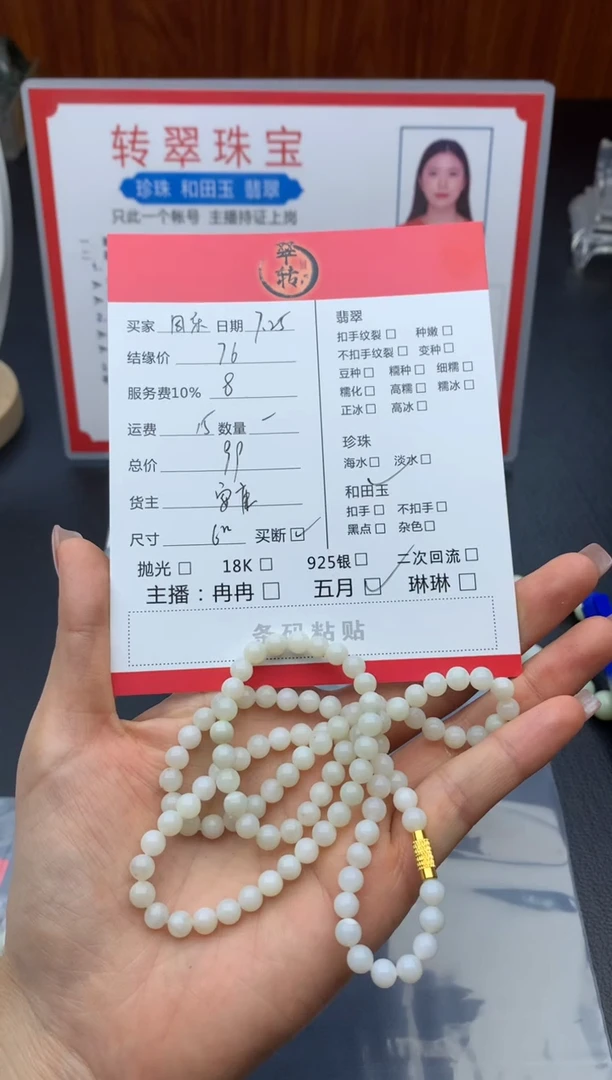 转翠珠宝
珍珠 和田玉 翡翠
只此一个帐号 主播持证上岗
翠转
买家 日期 7.25
结缘价 76
服务费10% 8
运费 15 数量 一
总价 99
货主
尺寸 6 买断☑
翡翠
扣手纹裂□ 种嫩□
不扣手纹裂□ 变种□
豆种□ 糯种□ 细糯□
糯化□ 高糯□ 糯冰□
正冰□ 高冰□
珍珠
海水□ 淡水□
和田玉
扣手□ 不扣手□
黑点□ 杂色□
抛光□ 18K□ 925银□ 二次回流□
主播：冉冉□ 五月☑ 琳琳□
条码粘贴